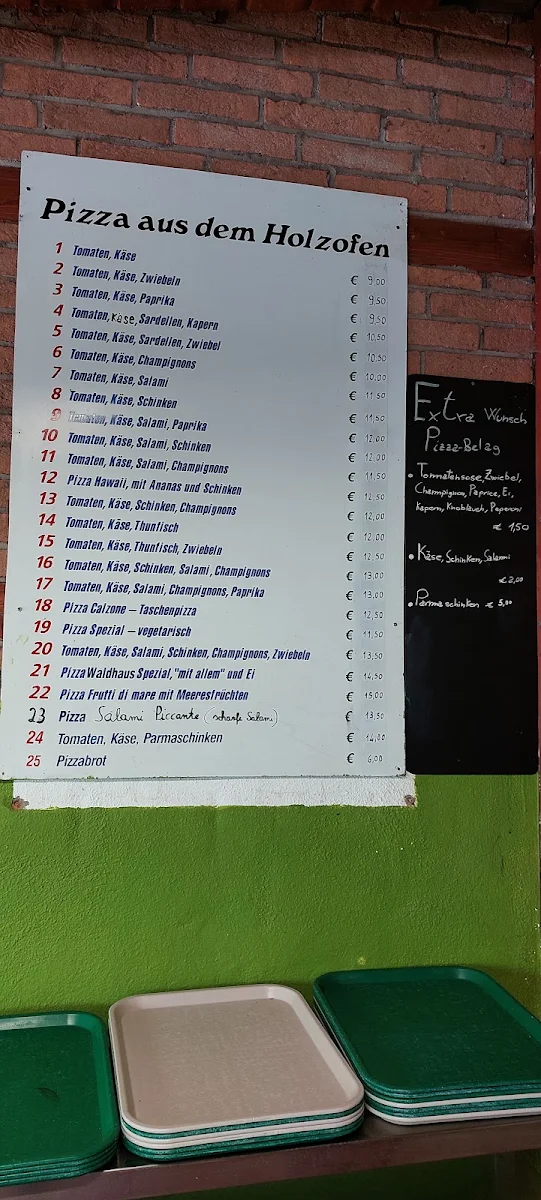 Pizza aus dem Holzofen
1 Tomaten, Käse € 9,00
2 Tomaten, Käse, Zwiebeln € 9,50
3 Tomaten, Käse, Paprika € 9,50
4 Tomaten, Käse, Sardellen, Kapern € 10,50
5 Tomaten, Käse, Sardellen, Zwiebel € 10,50
6 Tomaten, Käse, Champignons € 10,00
7 Tomaten, Käse, Salami € 11,50
8 Tomaten, Käse, Schinken € 11,50
9 Tomaten, Käse, Salami, Paprika € 12,00
10 Tomaten, Käse, Salami, Schinken € 12,00
11 Tomaten, Käse, Salami, Champignons € 11,50
12 Pizza Hawaii, mit Ananas und Schinken € 12,50
13 Tomaten, Käse, Schinken, Champignons € 12,00
14 Tomaten, Käse, Thunfisch € 12,00
15 Tomaten, Käse, Thunfisch, Zwiebeln € 12,50
16 Tomaten, Käse, Schinken, Salami, Champignons € 13,00
17 Tomaten, Käse, Salami, Champignons, Paprika € 13,00
18 Pizza Calzone – Taschenpizza € 12,50
19 Pizza Spezial – vegetarisch € 11,50
20 Tomaten, Käse, Salami, Schinken, Champignons, Zwiebeln € 13,50
21 Pizza Waldhaus Spezial, "mit allem" und Ei € 14,50
22 Pizza Frutti di mare mit Meeresfrüchten € 15,00
23 Pizza Salami Piccante (scharfe Salami) € 13,50
24 Tomaten, Käse, Parmaschinken € 14,00
25 Pizzabrot € 6,00
Extra Wunsch
Pizza-Belag
• Tomatensose, Zwiebel,
Champignon, Paprica, Ei,
Kapern, Knoblauch, Peperoni
€ 1,50
• Käse, Schinken, Salami
€ 2,00
• Parmaschinken € 5,00